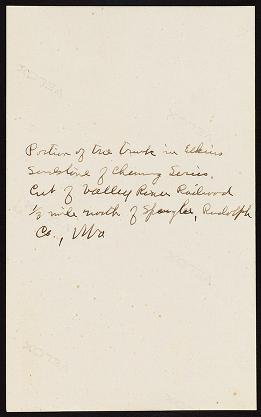 Portion of tree trunk in Elkins
Sandstone of Chemung Series.
Cut of Valley River Railroad
1/3 mile north of Spangler, Rudolph
Co., WVa